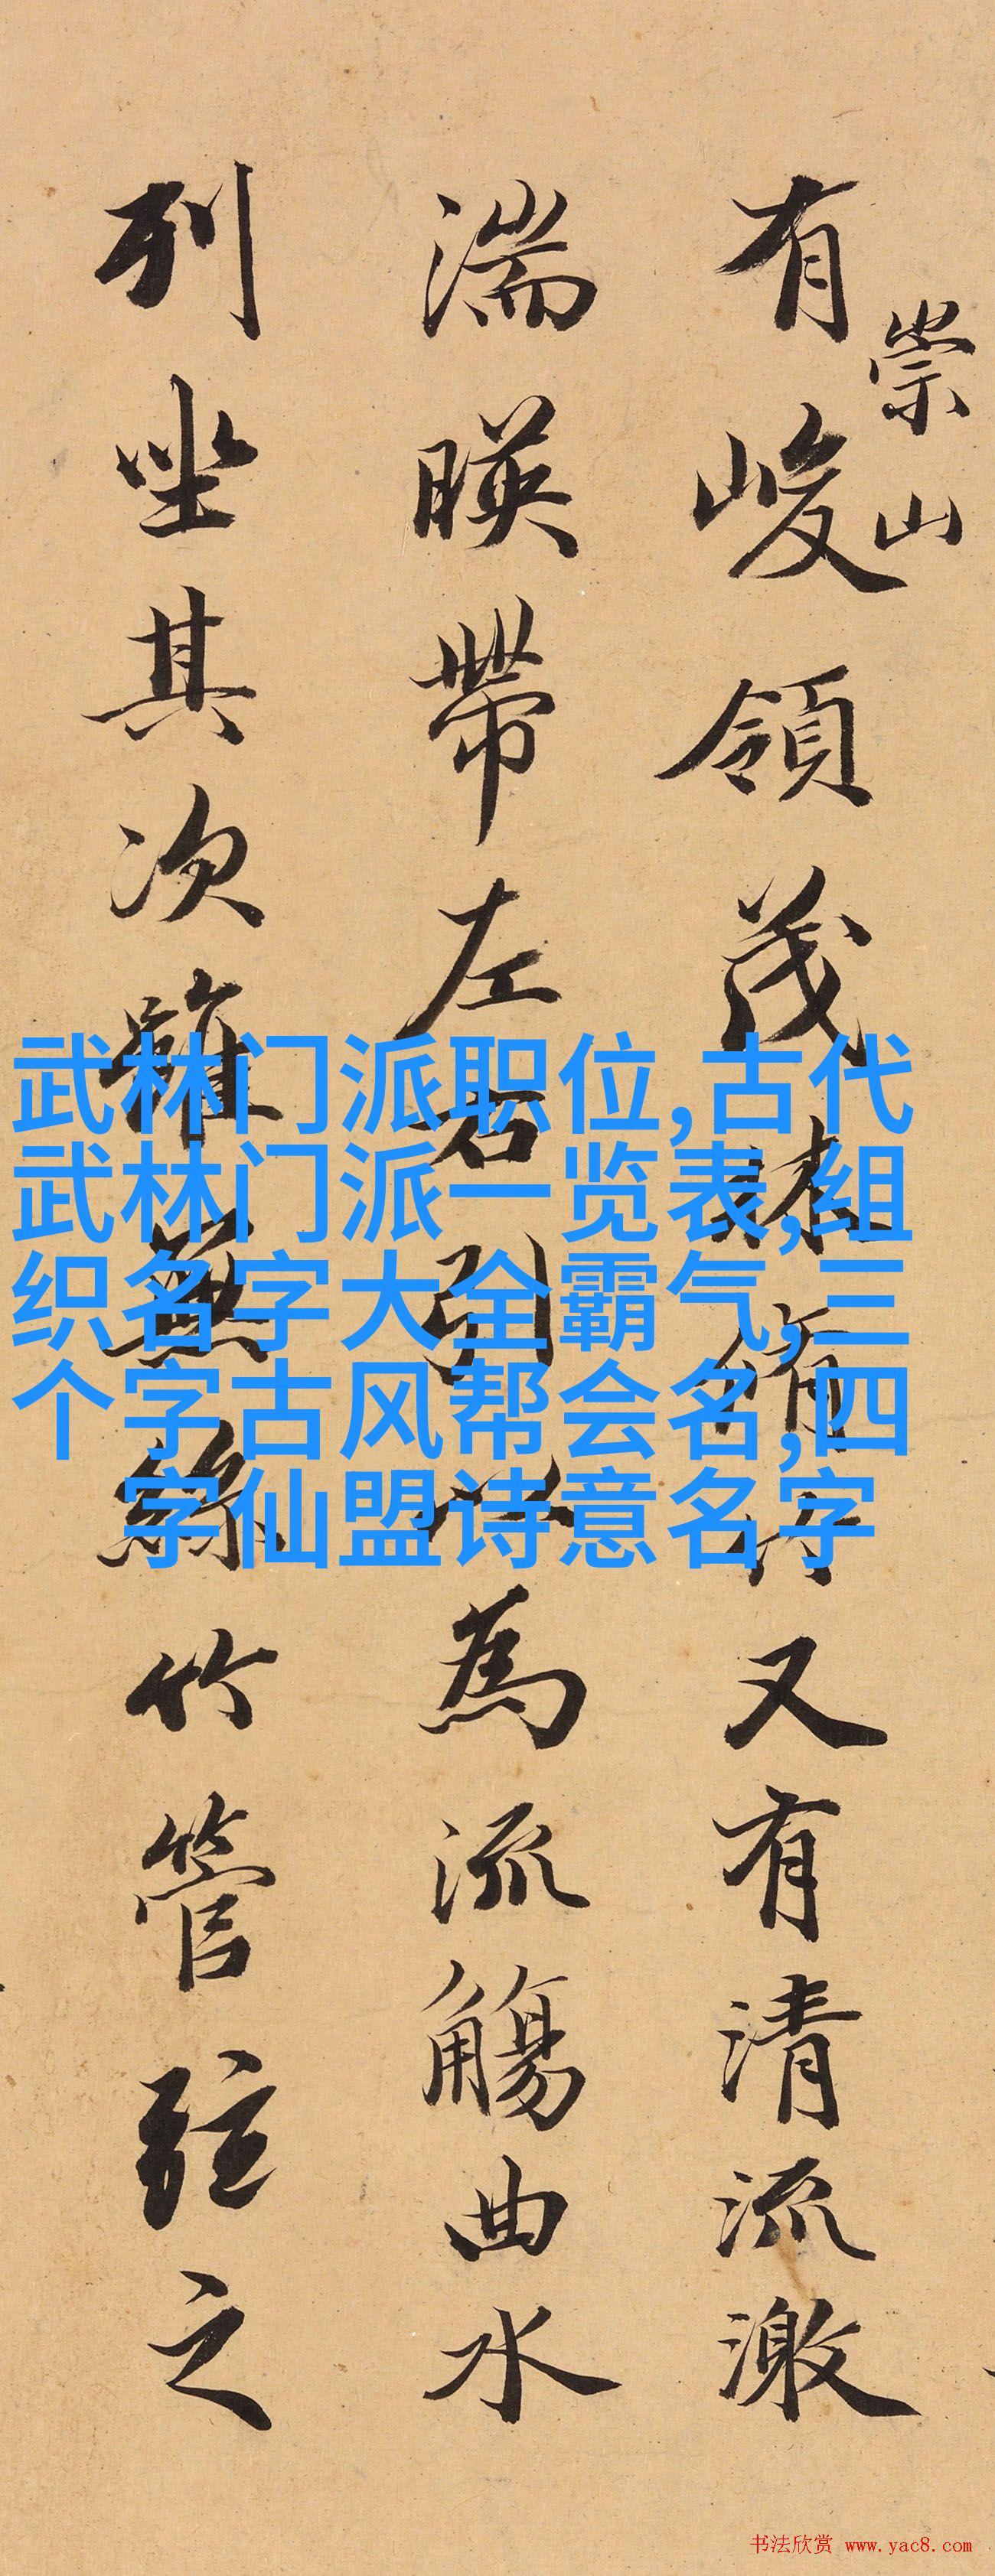 崇山
有峻領茂林脩竹又有清流激
湍暎帶左右引以為流觴曲水
列坐其次雖無絲竹管弦之
武林门派职位,古代
武林门派一览表,组
织名字大全霸气,三
个字古风帮会名,四
字仙盟诗意名字
书法欣赏 www.yac8.com